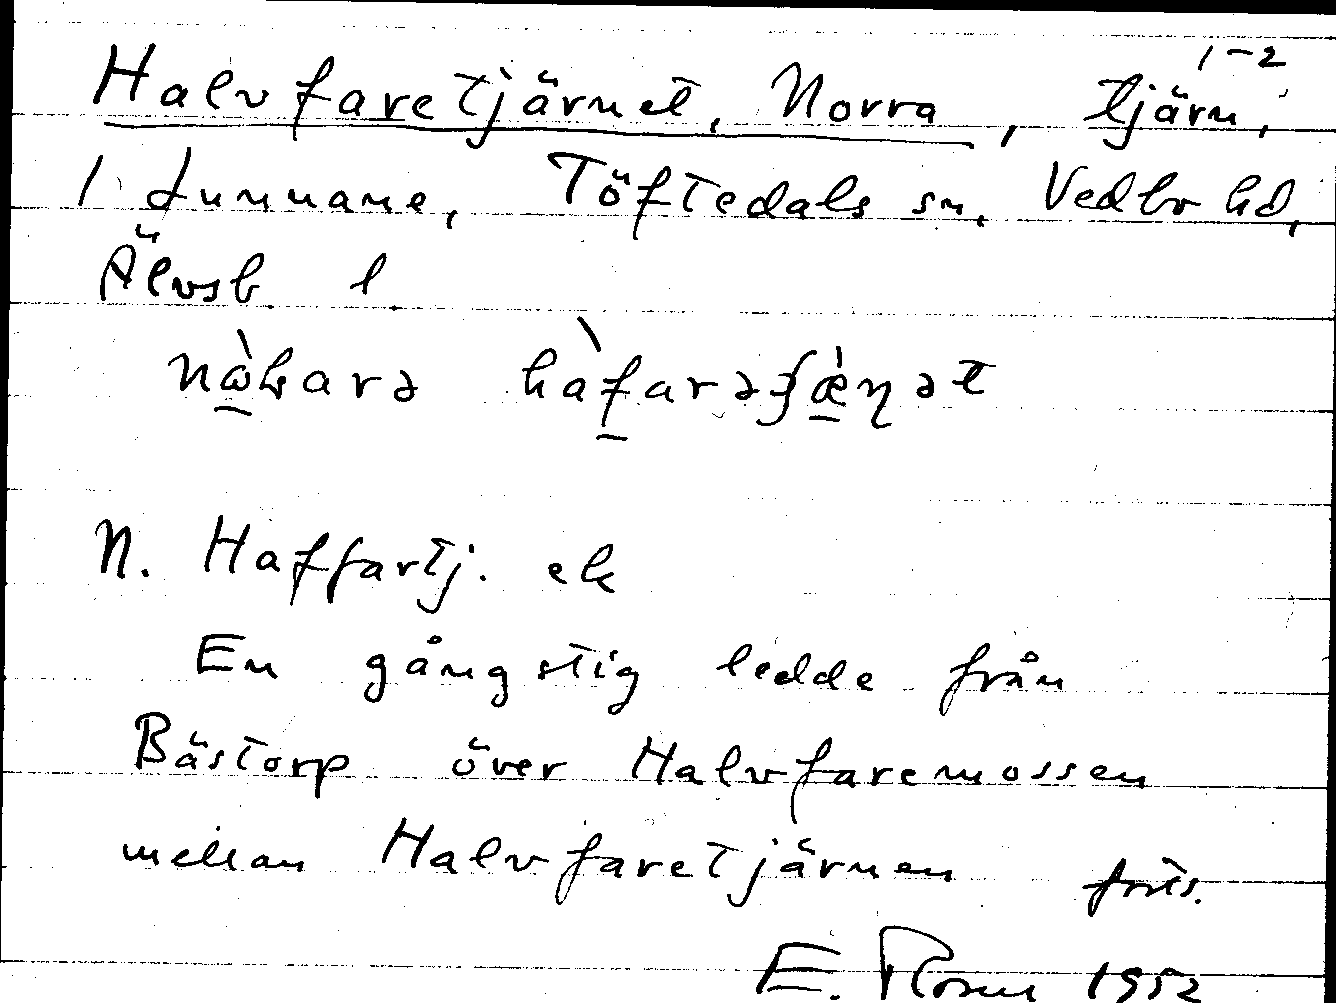 1-2
Halvfaretjärnet, Norra, tjärn,
1 Lunnane, Töftedals sn, Vedbo hd,
Älvsb l
N. Haffartj. ek
En gångstig ledde från
Bästorp över Halvfaremossen
mellan Halvfaretjärnen forts.
E. 1952